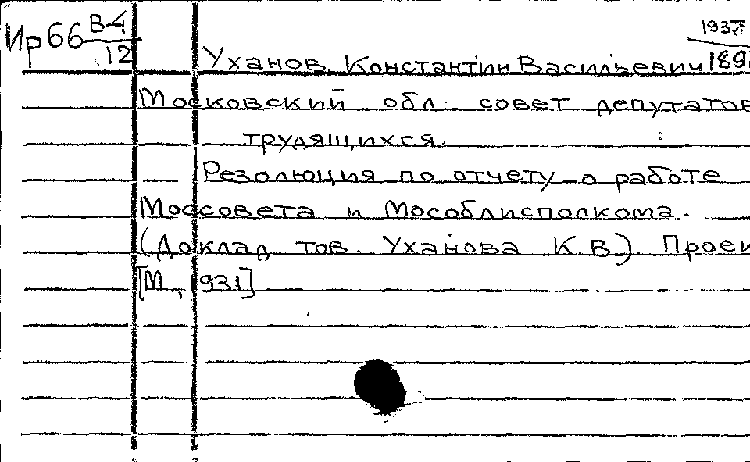 Ир66 В-4/12
1937
Уханов, Константин Васильевич 189
Московский обл. совет депутатов
трудящихся.
Резолюция по отчету о работе
Моссовета и Мособлисполкома.
(Доклад тов. Уханова К.В.) Проек
[М., 1931]